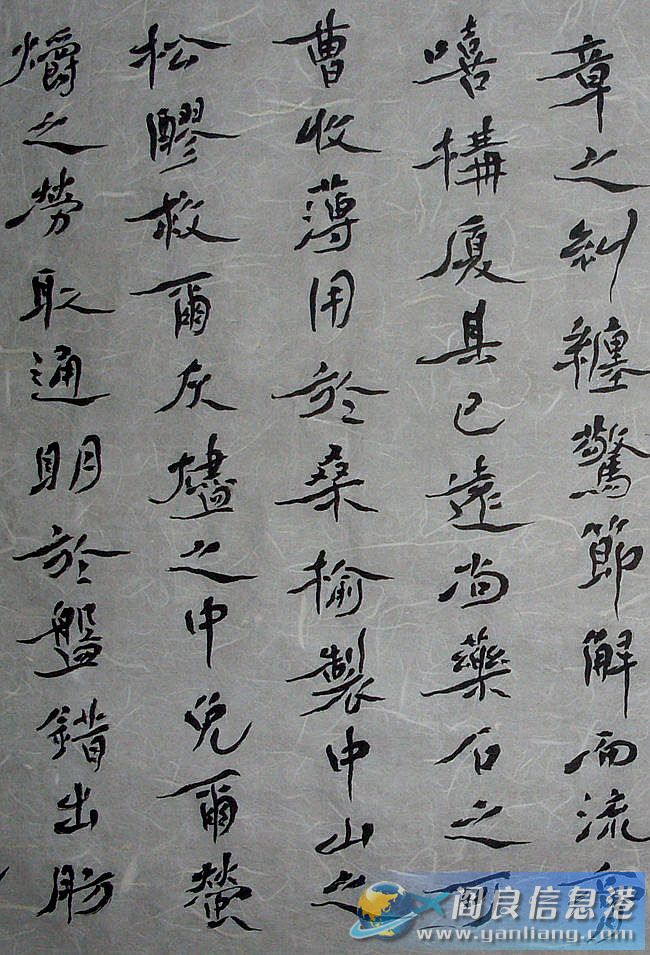 章之糾纏驚節解而流膏
嘻構厦其已遠尚藥石之可
曹收薄用於桑榆製中山之
松醪救爾灰燼之中免爾螢
爝之勞取通明於盤錯出肪
阎良信息港
www.yanliang.com